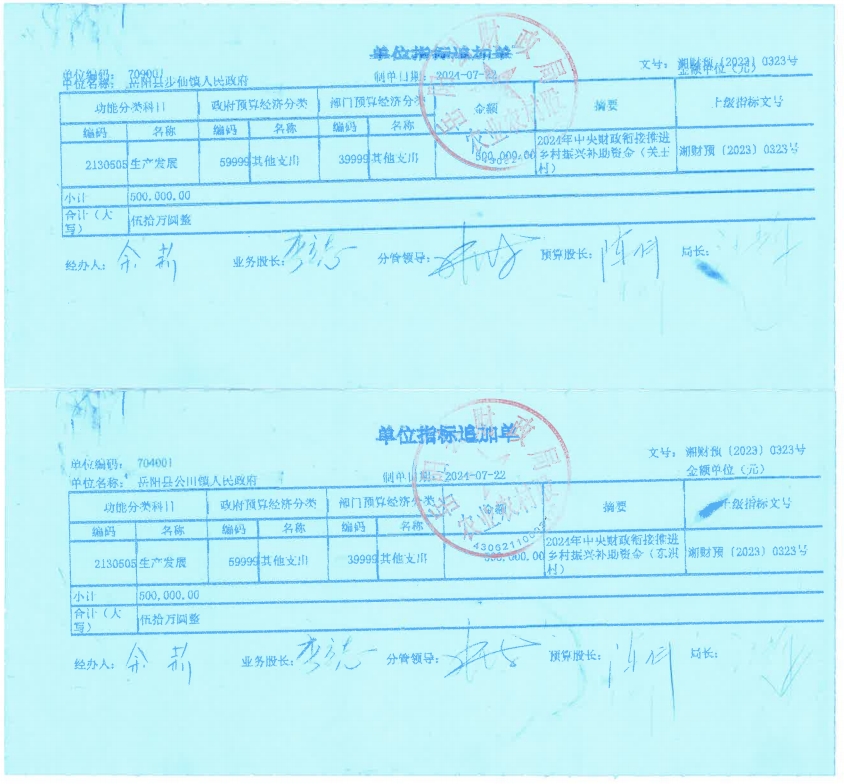 单位指标追加单
单位编码: 709001
单位名称: 岳阳县步仙镇人民政府
制单日期: 2024-07-22
文号: 湘财预〔2023〕0323号
金额单位（元）
功能分类科目 政府预算经济分类 部门预算经济分类 金额 摘要 上级指标文号
编码 名称 编码 名称 编码 名称
2130505 生产发展 59999 其他支出 39999 其他支出 500,000.00 2024年中央财政衔接推进乡村振兴补助资金（关王村） 湘财预〔2023〕0323号
小计 500,000.00
合计（大写） 伍拾万圆整
经办人: 余 业务股长: 分管领导: 预算股长: 陈 局长:
财政局
农业农村股
单位指标追加单
单位编码: 704001
单位名称: 岳阳县公田镇人民政府
制单日期: 2024-07-22
文号: 湘财预〔2023〕0323号
金额单位（元）
功能分类科目 政府预算经济分类 部门预算经济分类 金额 摘要 上级指标文号
编码 名称 编码 名称 编码 名称
2130505 生产发展 59999 其他支出 39999 其他支出 500,000.00 2024年中央财政衔接推进乡村振兴补助资金（东洪村） 湘财预〔2023〕0323号
小计 500,000.00
合计（大写） 伍拾万圆整
经办人: 余 业务股长: 分管领导: 预算股长: 陈 局长:
财政局
农业农村股